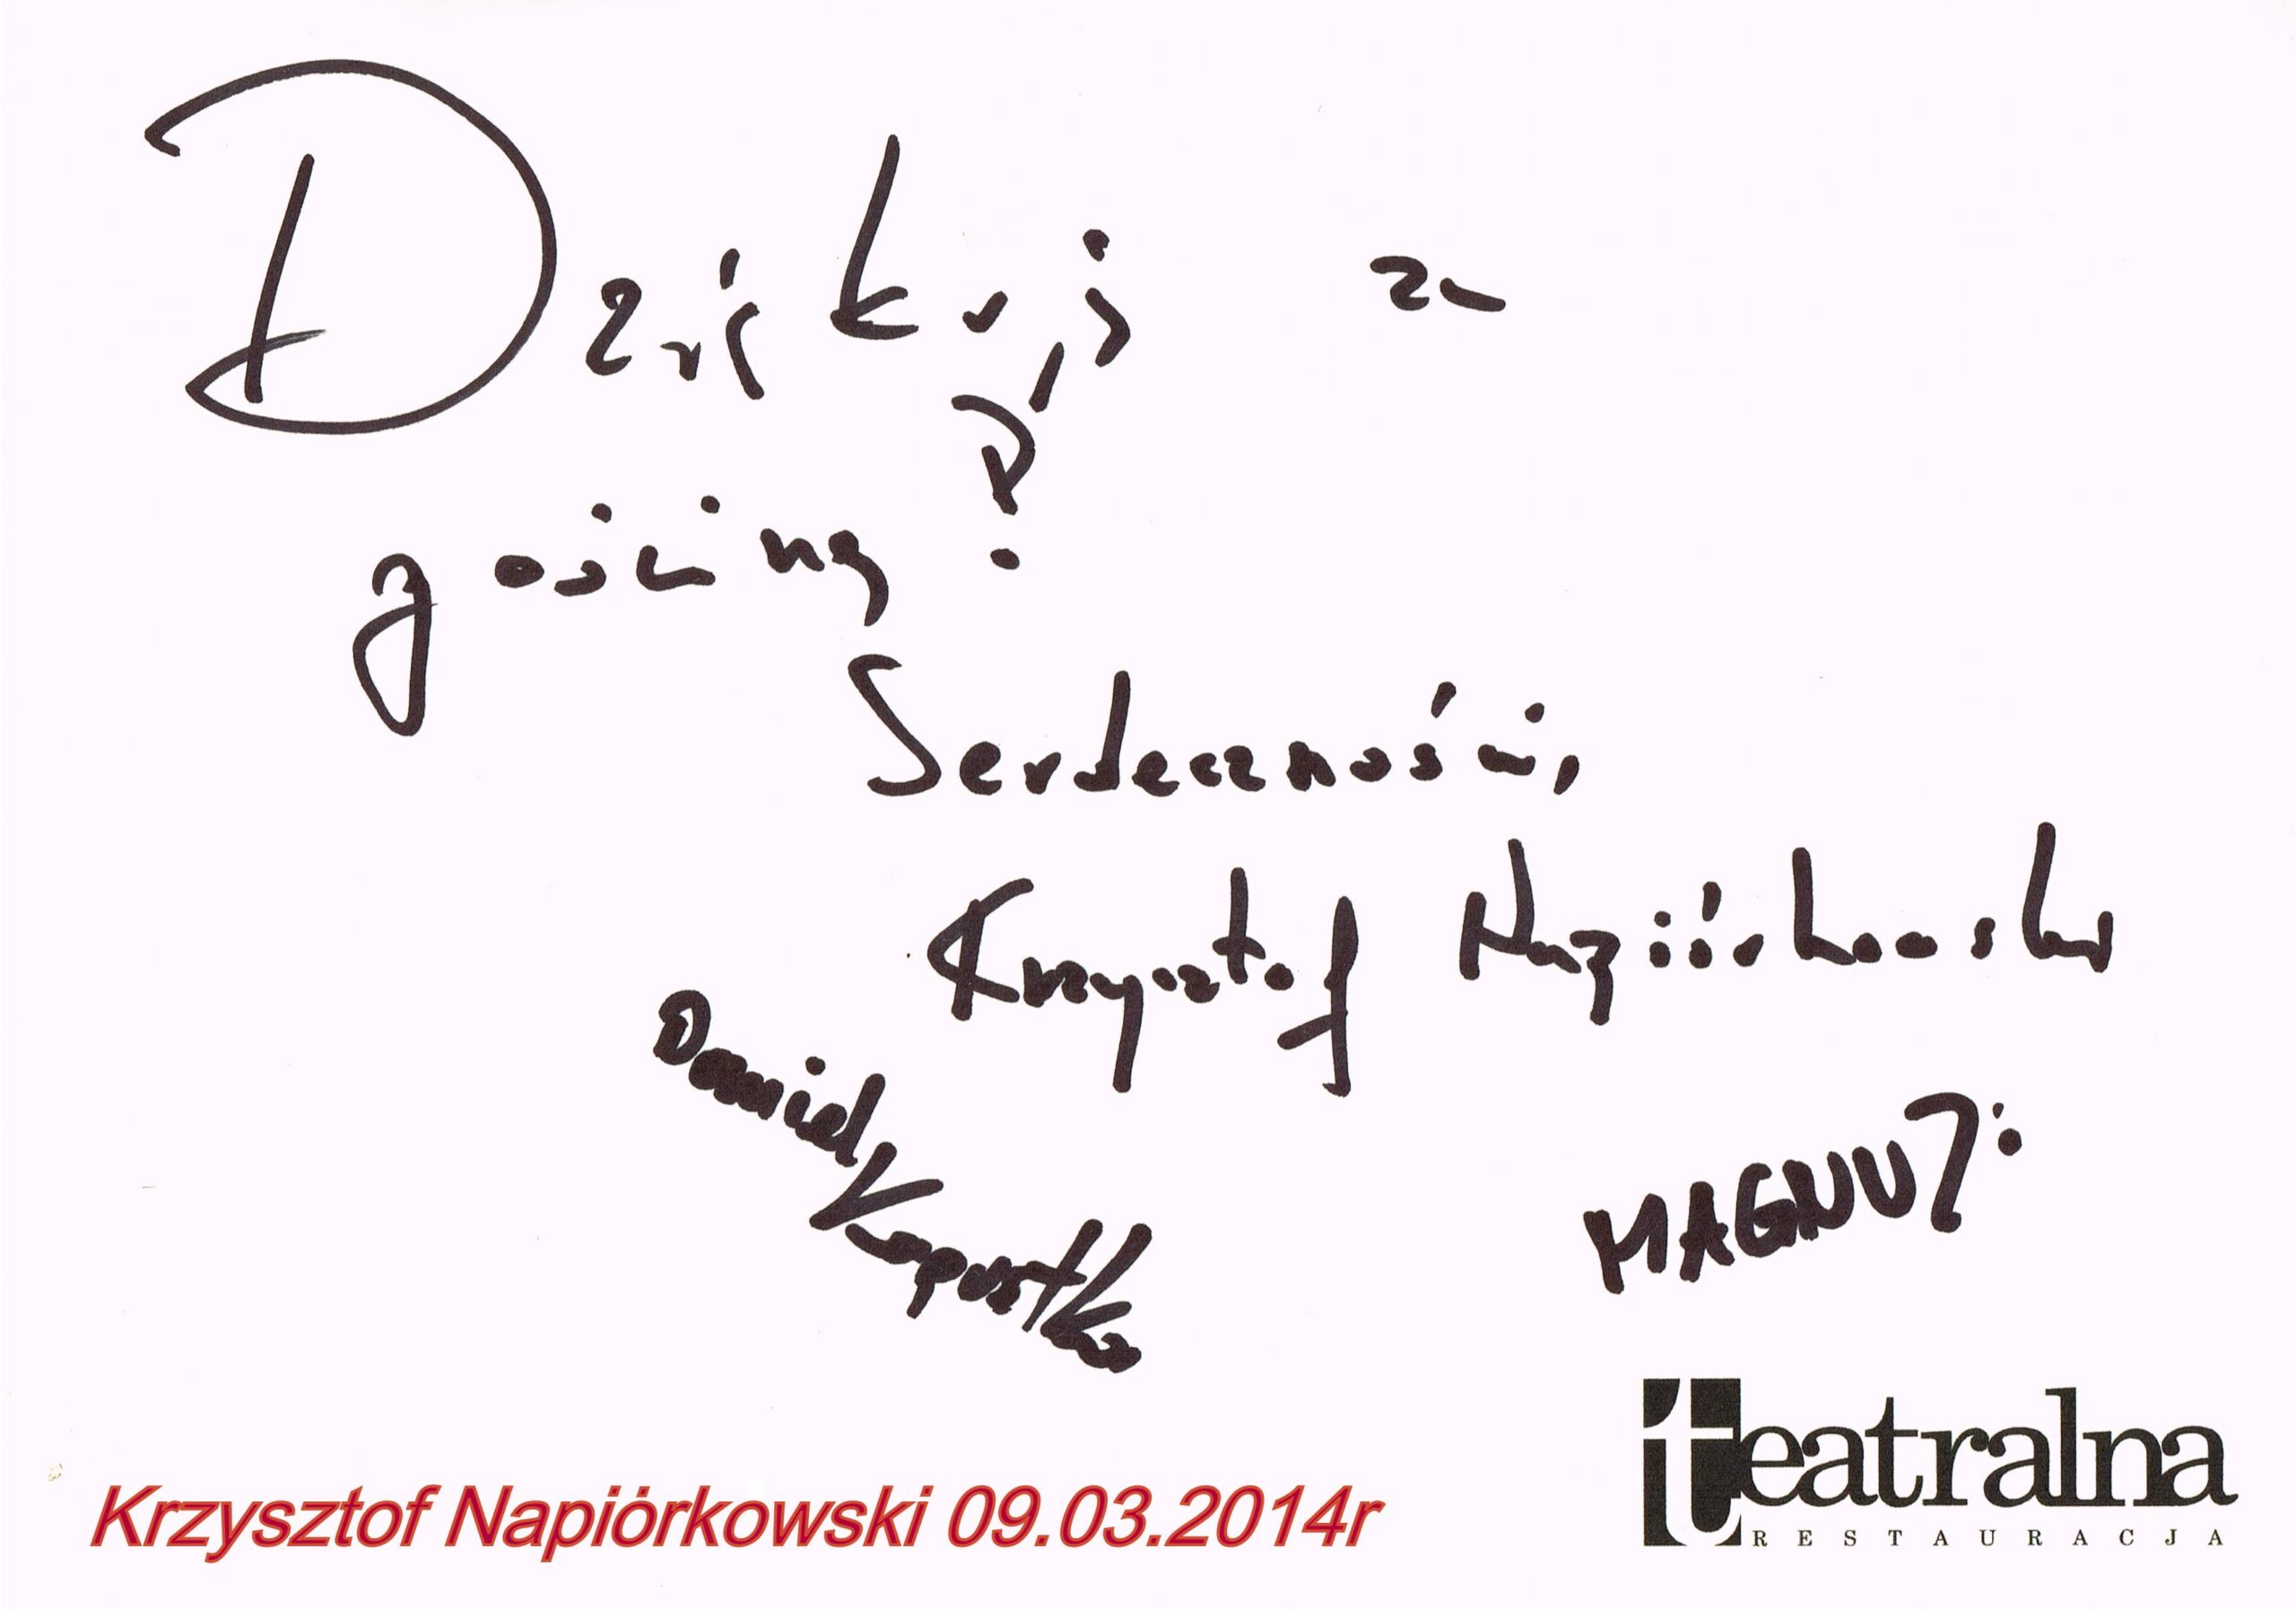 Dziękuję za
gościnę!
Serdeczności,
Krzysztof Napiórkowski
Daniel Kapustka
MAGNU
teatralna
RESTAURACJA
Krzysztof Napiórkowski 09.03.2014r